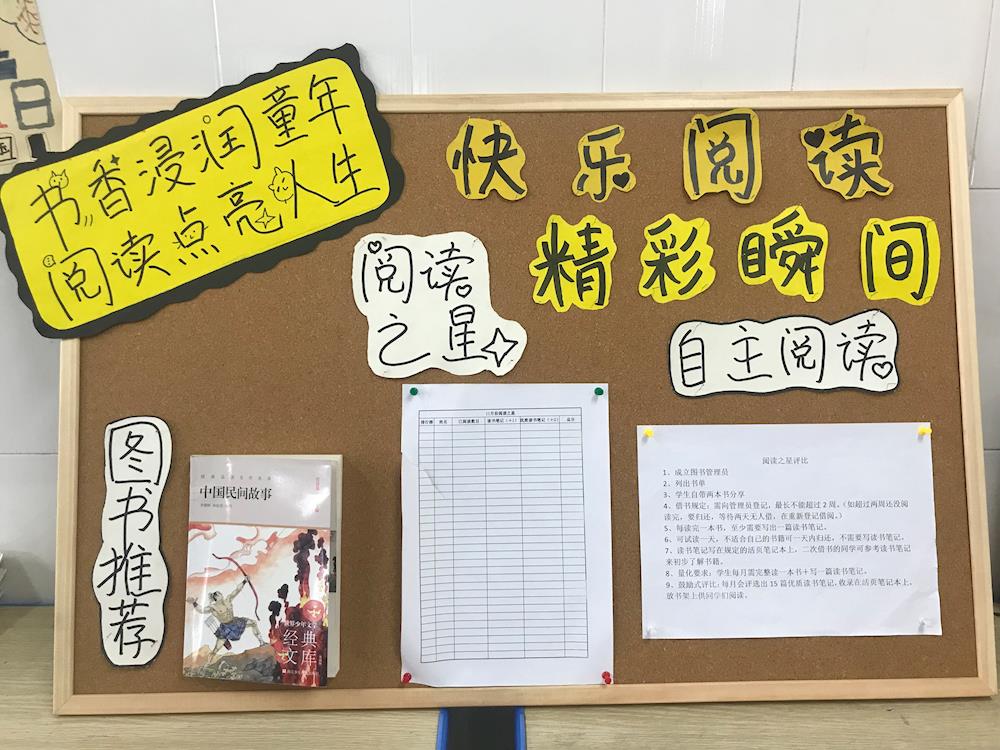 书香浸润童年
阅读点亮人生
快乐阅读
精彩瞬间
阅读
之星
自主阅读
图书推荐
中国民间故事
世界少年文学
经典
文库
11月份阅读之星
排行榜 姓名 已阅读数目 读书笔记（+1） 优质读书笔记（+2） 总分
阅读之星评比
1、成立图书管理员
2、列出书单
3、学生自带两本书分享
4、借书规定：需向管理员登记，最长不能超过2周。（如超过两周还没阅
读完，要归还，等待两天无人借，在重新登记借阅。）
5、每读完一本书，至少需要写出一篇读书笔记。
6、可试读一天，不适合自己的书籍可一天内归还，不需要写读书笔记。
7、读书笔记写在规定的活页笔记本上，二次借书的同学可参考读书笔记
来初步了解书籍。
8、量化要求：学生每月需完整读一本书+写一篇读书笔记。
9、鼓励式评比：每月会评选出15篇优质读书笔记，收录在活页笔记本上，
放书架上供同学们阅读。
日